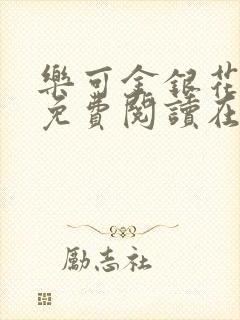 樂可金銀花
免費閱讀在
勵志社